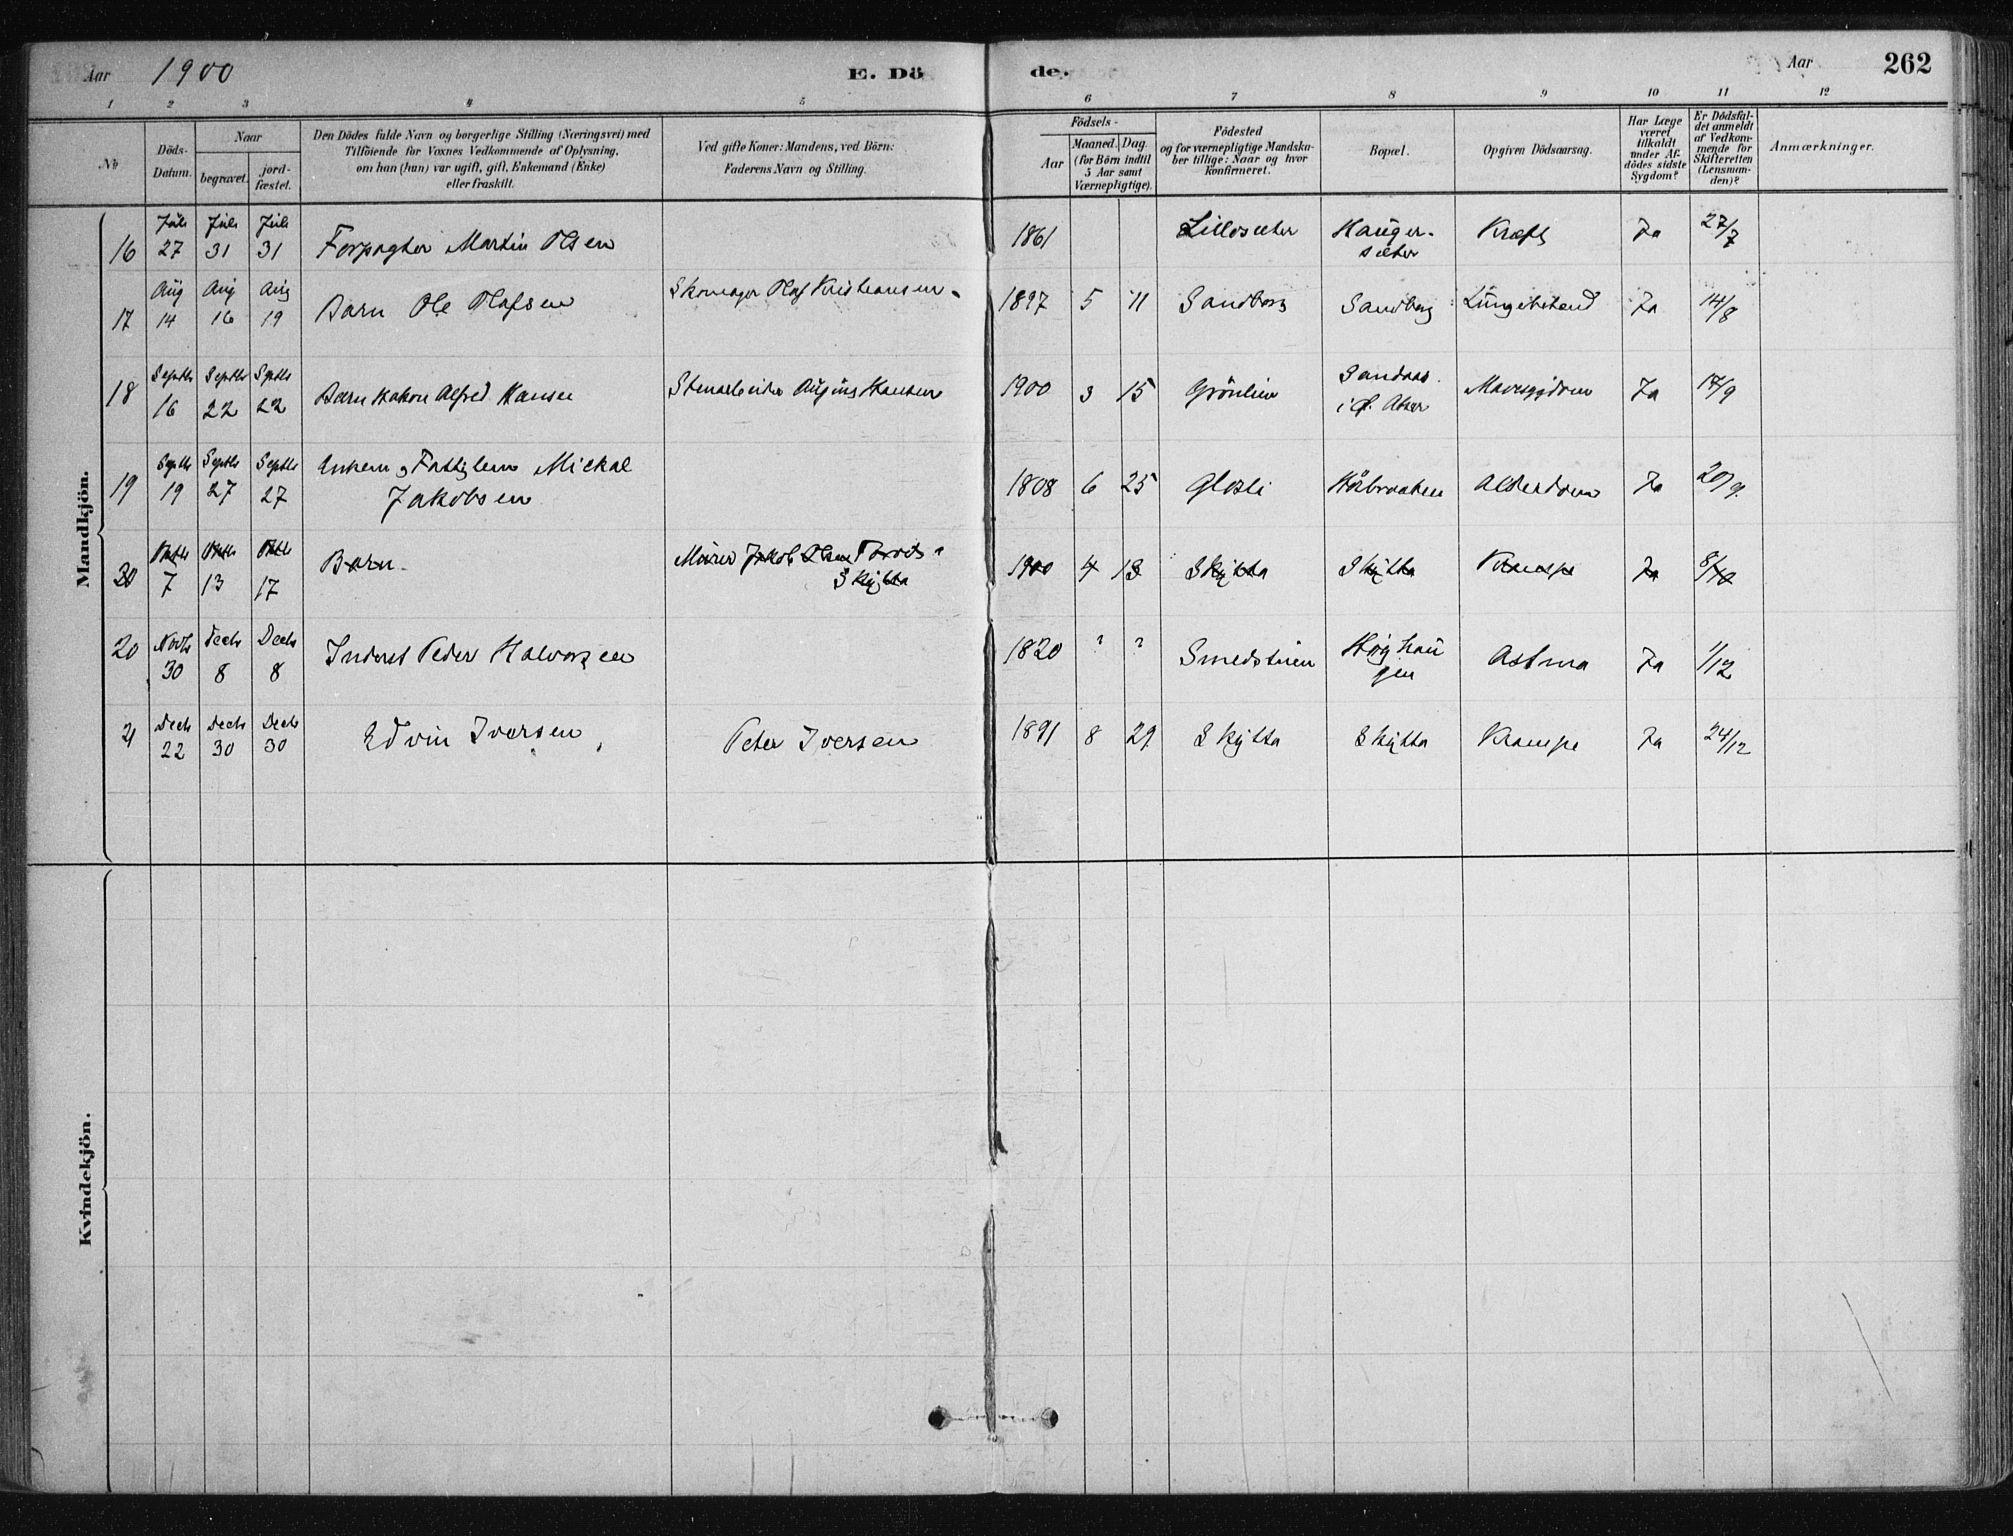 Aar 1900 E. Dö de. Aar 262
1 2 3 4 5 6 7 8 9 10 11 12
No
Döds-
Datum.
Naar
begravet.
jord-
fæstet.
Den Dödes fulde Navn og borgerlige Stilling (Næringsvei) med
Tilföiende for Voxnes Vedkommende af Oplysning,
om han (hun) var ugift, gift, Enkemand (Enke)
eller fraskilt.
Ved gifte Koner: Mandens, ved Börn:
Faderens Navn og Stilling.
Födsels-
Aar
Maaned. Dag.
(for Börn indtil
5 Aar samt
Værnepligtige).
Födested
og for værnepligtige Mandska-
ber tillige: Naar og hvor
konfirmeret.
Bopæl.
Opgiven Dödsaarsag.
Har Læge
været
tilkaldt
under Af-
dödes sidste
Sygdom?
Er Dödsfal-
det anmeldt
af Vedkom-
mende for
Skifteretten
(Lensman-
den)?
Anmærkninger.
Mandkjön.
16 Juli 27 Juli 31 Juli 31 Forpagter Martin Olsen 1861 Lillesæter Hauger-
sæter Kræft Ja 27/7
17 Aug 14 Aug 16 Aug 19 Barn Ole Olafsen Skomager Olaf Kristiansen 1897 5 11 Sandberg Sandberg Ja 14/8
18 Septb 16 Septb 22 Septb 22 Barn Hakon Alfred Hansen Stenarbeider August Hansen 1900 3 15 Grönlien Sandaas
Mavesygdom Ja 17/9
19 Septb 19 Septb 27 Septb 27 Fattiglem Mickal
Jakobsen 1808 6 25 Glosli Alderdom Ja 20/9
20 7 13 17 Barn. Murer Jakob Olsen
Skytta 1900 4 13 Skytta Skytta Krampe Ja 8/10
20 Novb 30 Decb 8 Decb 8 Inderst Peder Halvorsen 1820 ? ? Smedstuen Høghau
gen Astma Ja 1/12
21 Decb 22 Decb 30 Decb 30 Edvin Iversen Peter Iversen 1891 8 29 Skytta Skytta Krampe Ja 24/12
Kvindekjön.